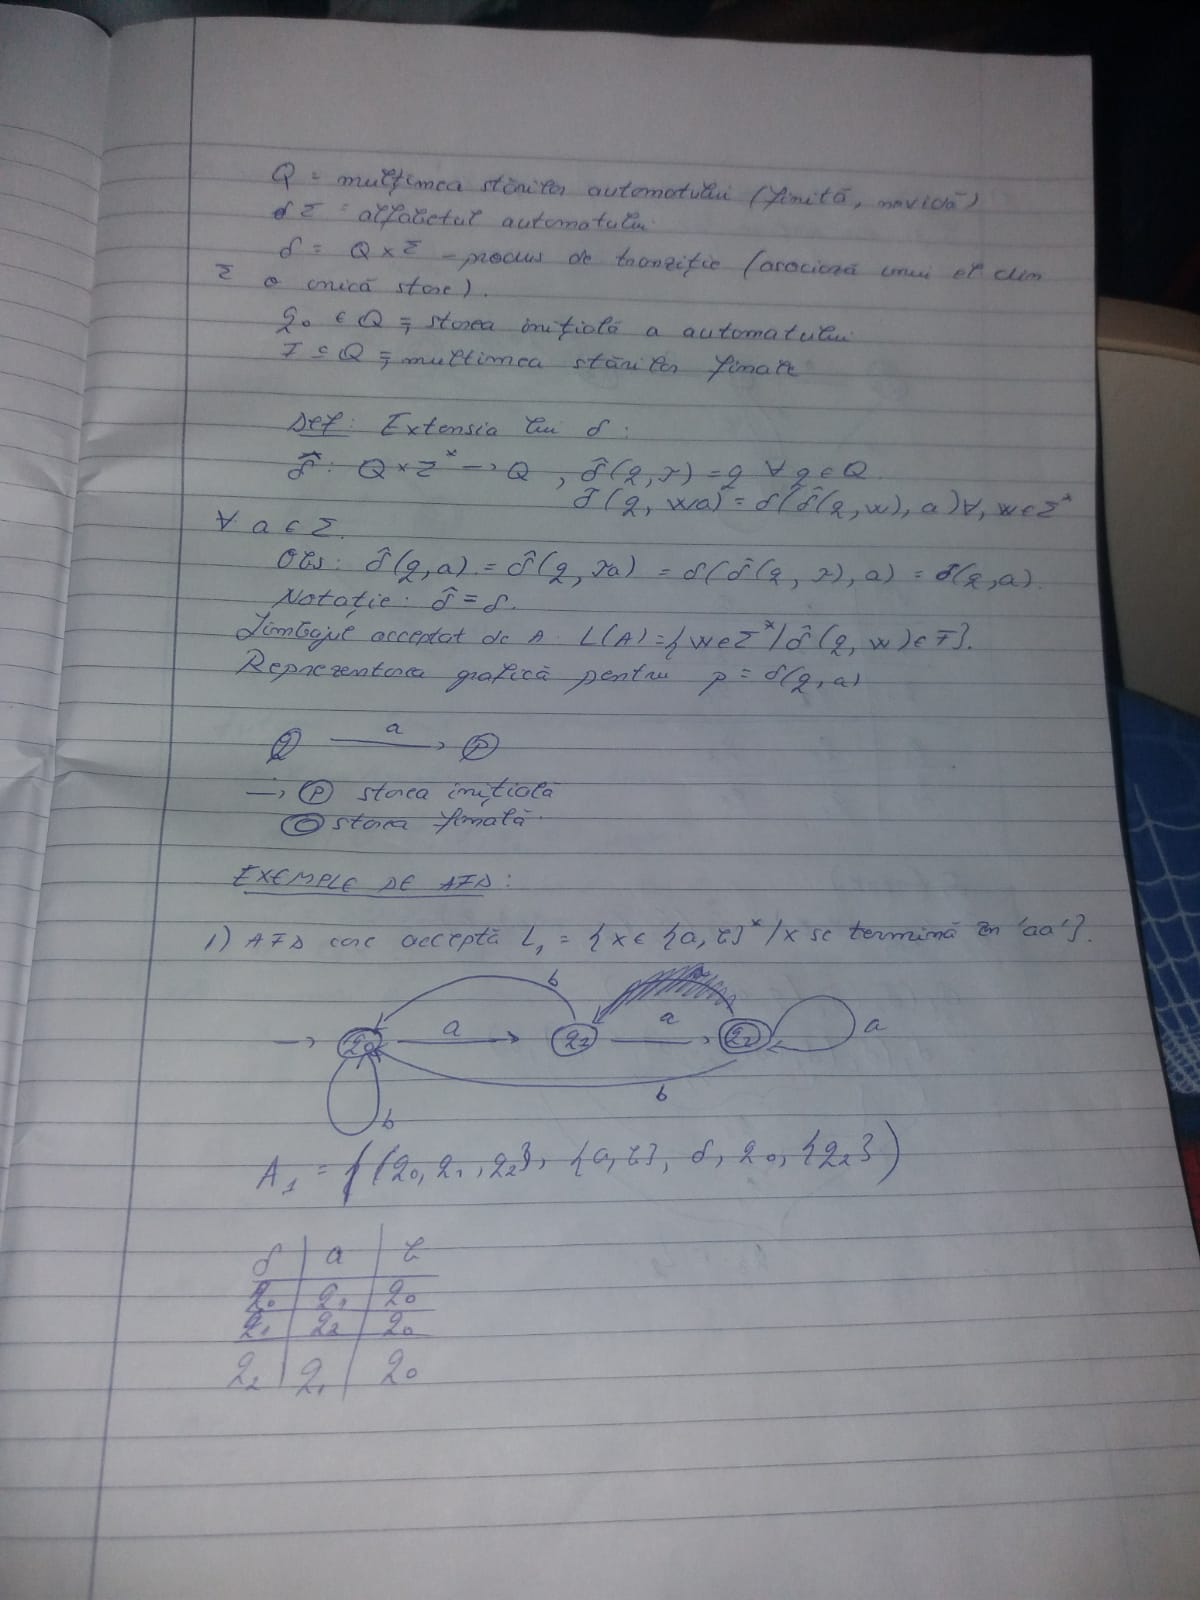 Q = mulțimea stărilor automatului (finită, nevidă)
Σ = alfabetul automatului
δ = Q × Σ – proces de tranziție (asociază unui el din
Σ o unică stare).
q₀ ∈ Q = starea inițială a automatului
F ⊆ Q = multimea stărilor finale
Def: Extensia lui δ:
δ̂: Q × Σ* → Q, δ̂(q, λ) = q ∀ q ∈ Q
δ̂(q, wa) = δ(δ̂(q, w), a) ∀, w ∈ Σ*
∀ a ∈ Σ.
Obs: δ̂(q,a) = δ̂(q, λa) = δ(δ̂(q, λ), a) = δ(q,a).
Notație: δ̂ = δ.
Limbajul acceptat de A. L(A) = {w ∈ Σ* / δ̂(q, w) ∈ F}.
Reprezentarea grafică pentru p = δ(q,a)
q a → p
→ p starea inițială
starea finală.
EXEMPLE DE AFD:
1) AFD care acceptă L₁ = {x ∈ {a, b}* / x se termină în 'aa'}.
b
→ q₀ a → q₁ a → q₂ a
b
b
A₁ = ({q₀, q₁, q₂}, {a, b}, δ, q₀, {q₂})
δ | a | b
q₀ | q₁ | q₀
q₁ | q₂ | q₀
q₂ | q₁ | q₀